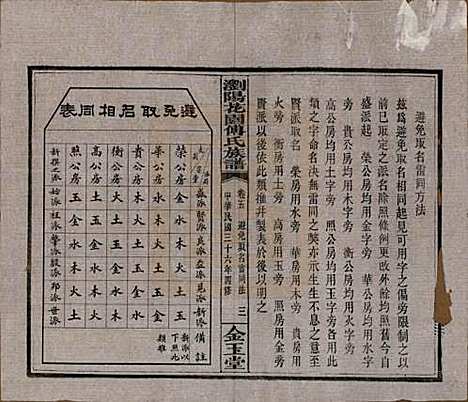 避免取名雷同方法
茲爲避免取名雷同起見可用字之偏旁限制之以
前已取定之派名除照修例更改外餘均照例
盛派起 榮公房均用金字旁 華公房均用水字
旁 貴公房均用木字旁 衡公房均用火字旁
高公房均用土字旁 照公房均用玉字旁
類之字命名決無雷同之獘亦示生生不息之意至
賢派取名 榮房用水旁 華房用木旁 貴房用
火旁 衡房用土旁 高房用玉旁 照房用金旁
賢派以後以此類推并製表於後以明之
瀏陽北園傅氏族譜
卷五 避免取名雷同法 三
中華民國三十六年四修
金玉堂
避免取名相同表
榮公房 金 水 木 火 土 玉
華公房 水 木 火 土 玉 金
貴公房 木 火 土 玉 金 水
衡公房 火 土 玉 金 水 木
高公房 土 玉 金 水 木 火
照公房 玉 金 水 木 火 土
備註
新派以下照此類推